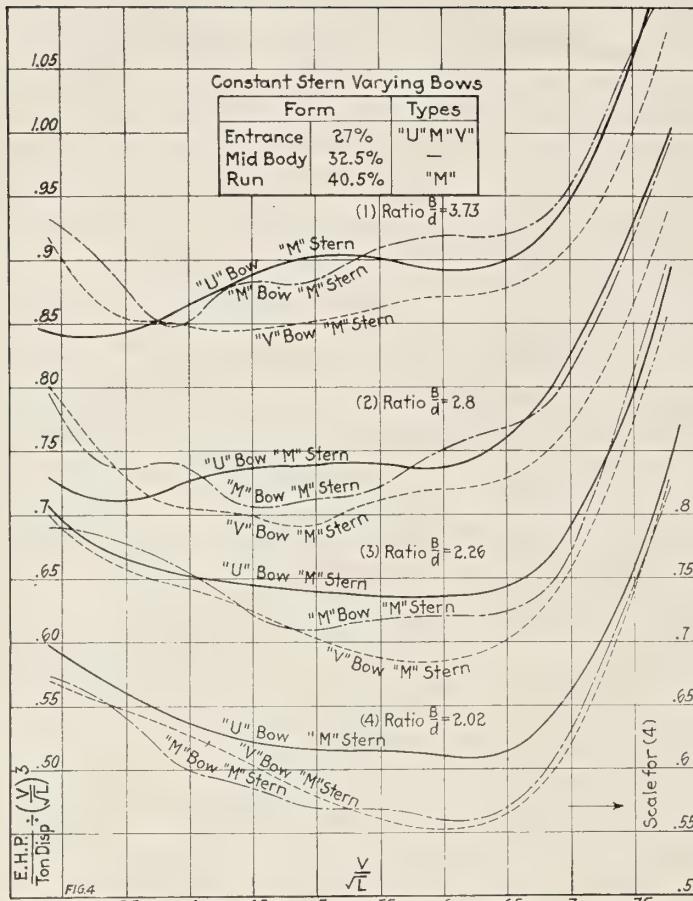 Constant Stern Varying Bows
Form Types
Entrance 27% "U" M" V"
Mid Body 32.5% —
Run 40.5% "M"
1.05
1.00
.95
.9
.85
.80
.75
.7
.65
.60
.55
.50
(1) Ratio B/d = 3.73
"U" Bow "M" Stern
"M" Bow "M" Stern
"V" Bow "M" Stern
(2) Ratio B/d = 2.8
"U" Bow "M" Stern
"M" Bow "M" Stern
"V" Bow "M" Stern
(3) Ratio B/d = 2.26
"U" Bow "M" Stern
"M" Bow "M" Stern
"V" Bow "M" Stern
(4) Ratio B/d = 2.02
"U" Bow "M" Stern
"V" Bow "M" Stern
"M" Bow "M" Stern
.8
.75
.7
.65
.6
.55
.5
Scale for (4)
E.H.P. / Ton Disp ÷ (V/√L)³
V/√L
FIG.4